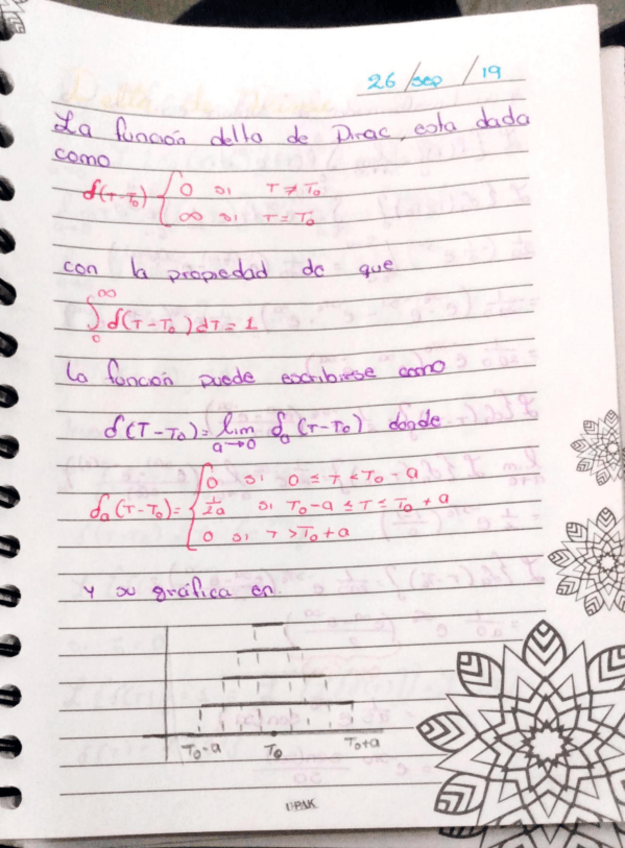 26/sep/19
La función delta de Dirac, esta dada
como
δ(T-T₀) { 0 si T ≠ T₀
∞ si T = T₀
con la propiedad de que
∫₀^∞ δ(T-T₀)dT = 1
la función puede escribirse como
δ(T-T₀) = lim a→0 δₐ(T-T₀) donde
δₐ(T-T₀) = { 0 si 0 ≤ T < T₀-a
1/2a si T₀-a ≤ T ≤ T₀+a
0 si T > T₀+a
y se gráfica en.
T₀-a T₀ T₀+a